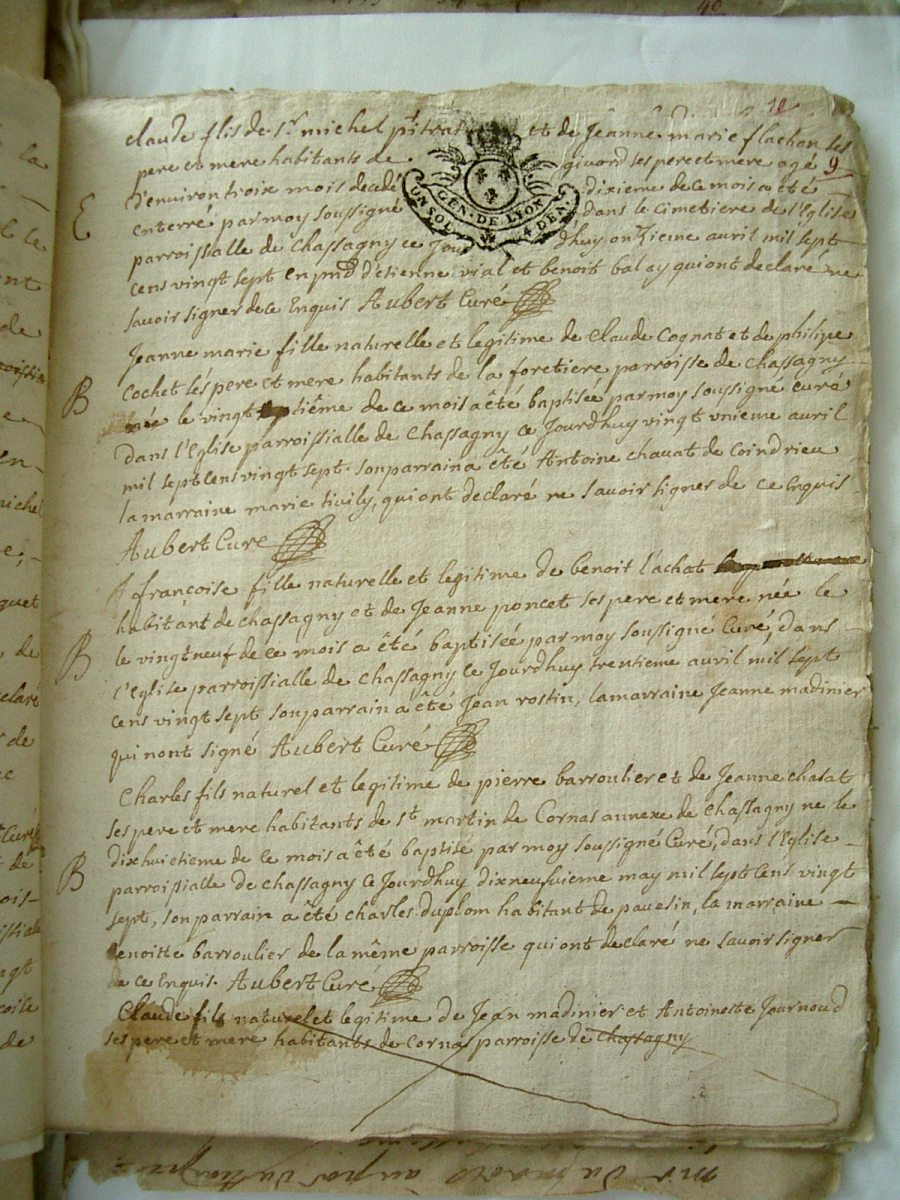 10
9
claude fils de Sr michel pitrat et de Jeanne marie flachon ses
pere et mere habitants de givord ses pere et mere agé
E
d'environ troix mois decedé dixieme de ce mois a été
enterré par moy soussigné dans le cimetiere de l'Eglise
parroissialle de Chassagny ce Jourdhuy onzieme avril mil sept
cens vingt sept en pnce d'etienne vial et benoit balay qui ont declaré ne
savoir signer de ce Enquis Aubert Curé
GEN. DE LYON
UN SOL 4 DEN.
Jeanne marie fille naturelle et legitime de Claude Cognat et de philipe
Cochet sés pere et mere habitants de la foretiere parroisse de Chassagny
B
née le vingt tiême de ce mois a êté baptisée par moy soussigné curé
dans l'Eglise parroissialle de Chassagny ce Jourdhuy vingt vnieme avril
mil sept cens vingt sept. son parrain a êté Antoine chavat de Coindrieu
la marraine marie qui ont declaré ne savoir signer de ce Enquis
Aubert Cure
françoise fille naturelle et legitime de benoit l'achat
habitant de chassagny et de Jeanne poncet ses pere et mere née le
B
le vingt neuf de ce mois a êté baptisée par moy soussigné Curé, dans
l'Eglise parroissialle de chassagny ce Jourdhuy trentieme avril mil sept
cens vingt sept son parrain a êté Jean rostin, la marraine Jeanne madinier
qui nont signé Aubert Curé
Charles fils naturel et legitime de pierre barroulier et de Jeanne chatat
ses pere et mere habitants de St martin de Cornas annexe de Chassagny ne le
dixhuictieme de ce mois a êté baptisé par moy soussigné Curé, dans l'Eglise
B
parroissialle de chassagny ce Jourdhuy dixneufuieme may mil sept cens vingt
sept, son parrain a êté charles duplom habitant de pavesin, la marraine
benoitte barroulier de la même parroisse qui ont declaré ne savoir signer
de ce Enquis. Aubert Curé
Claude fils naturel et legitime de Jean madinier et Antoinette Journoud
ses pere et mere habitants de Cornas parroisse de Chassagny